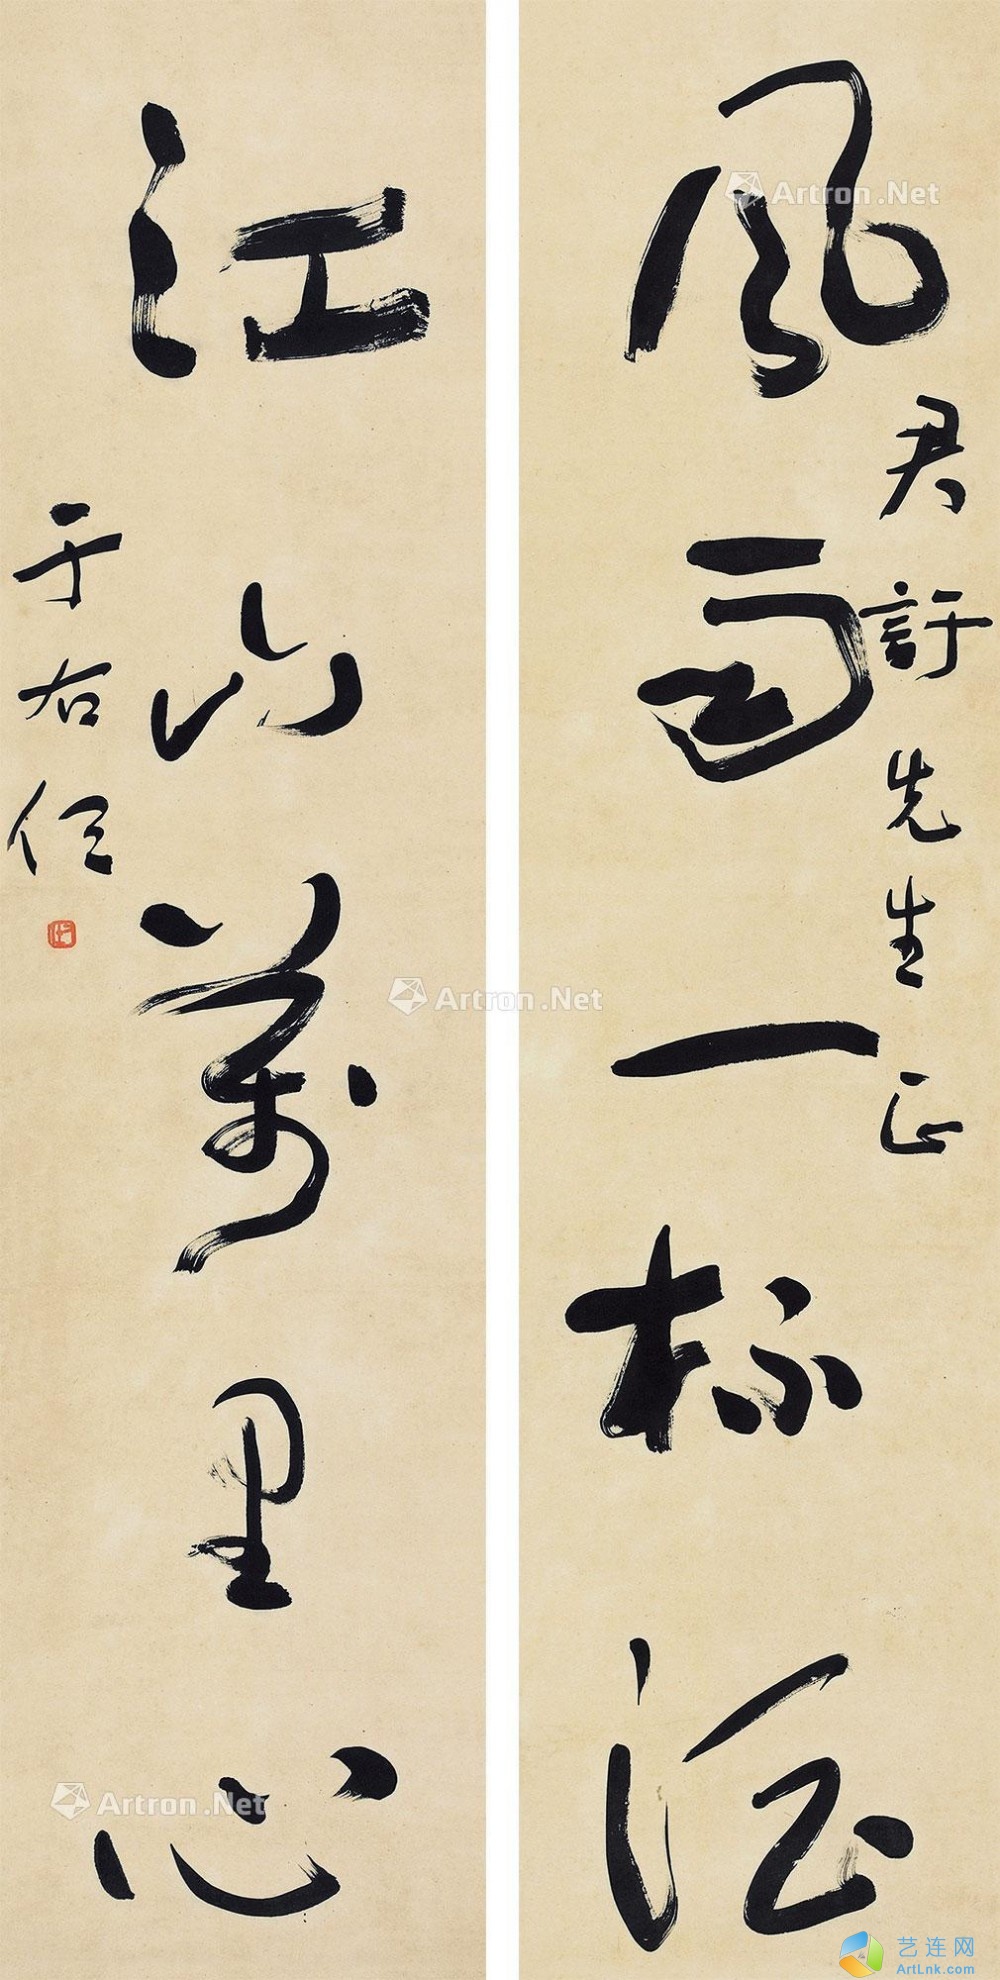 风雨一杯酒
君訏先生正
江山萬里心
于右任
Artron.Net
Artron.Net
Artron.Net
艺连网
ArtLnk.com